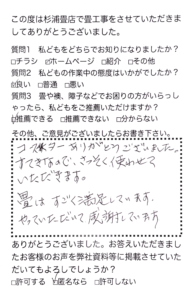 この度は杉浦畳店で畳工事をさせていただきま
してありがとうございました。
質問1 私どもをどちらでお知りになりましたか?
□チラシ □ホームページ □紹介 □その他
質問2 私どもの作業中の態度はいかがでしたか?
□良い □普通 □悪い
質問3 畳や襖、障子などでお困りの方がいらっし
ゃったら、私どもをご推薦いただけますか?
□推薦できる □推薦できない □分からない
その他、ご意見がございましたらお書き下さい。
コースター ありがとうございました。
すてきなので、さっそく使わせて
いただきます。
畳はすごく満足しています。
やっていただいて感謝しています
ありがとうございました。お答えいただきまし
たお客様のお声を弊社資料等に掲載させていた
だいてもよろしでしょうか?
□許可する □匿名なら □許可しない